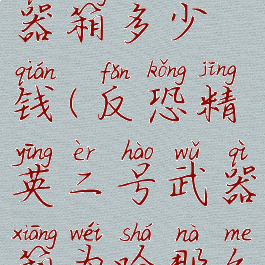 器箱多少
qián fǎn kǒng jīng
钱(反恐精
yīng èr hào wǔ qì
英二号武器
xiāng wéi shá nà me
箱为啥那么